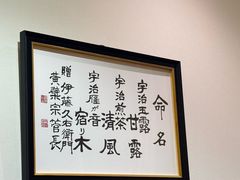 命名
宇治玉露
甘露
宇治煎茶
清風
宇治雁が音
宿り木
贈伊藤久右衛門
黄檗宗管長